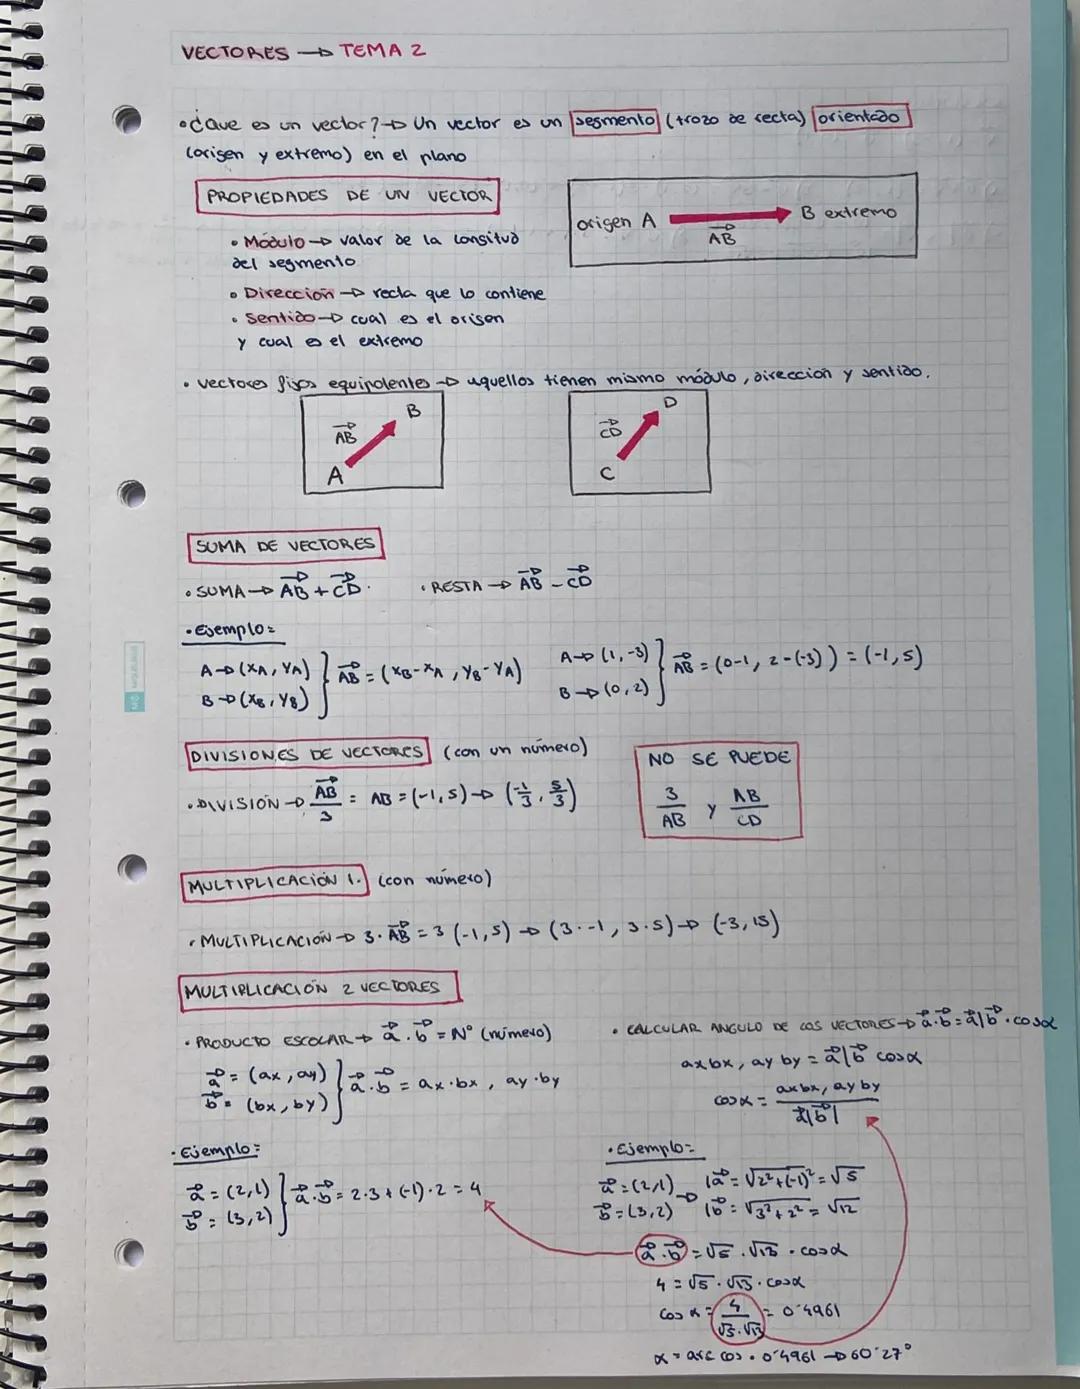 VECTORES → TEMA 2
• ¿Que es un vector? → Un vector es un segmento (trozo de recta) orientado
(origen y extremo) en el plano
PROPIEDADES DE UN VECTOR
• Módulo → valor de la longitud
del segmento
• Dirección → recta que lo contiene
• Sentido → cual es el origen
y cual es el extremo
origen A
B extremo
AB
• vectores fijos equipolentes → aquellos tienen mismo módulo, dirección y sentido.
AB
A
B
CD
C
D
SUMA DE VECTORES
• SUMA → AB + CD.
• RESTA → AB - CD
• Ejemplo:
A → (XA, YA)
B → (XB, YB)
AB = (XB-XA, YB-YA)
A → (1, -3)
B → (0, 2)
AB = (0-1, 2-(-3)) = (-1, 5)
DIVISIONES DE VECTORES (con un número)
• DIVISIÓN → AB/3 = AB = (-1, 5) → (-1/3, 5/3)
NO SE PUEDE
3/AB y AB/CD
MULTIPLICACIÓN 1. (con número)
• MULTIPLICACIÓN → 3·AB = 3 (-1, 5) → (3·-1, 3·5) → (-3, 15)
MULTIPLICACIÓN 2 VECTORES
• PRODUCTO ESCOLAR → a·b = Nº (número)
a = (ax, ay)
b = (bx, by)
a·b = ax·bx, ay·by
• Ejemplo:
a = (2,1)
b = (3,2)
a·b = 2·3 + (-1)·2 = 4
• CALCULAR ANGULO DE LOS VECTORES → a·b = a|b·cosα
axbx, ay by = a|b cosα
cosα = axbx, ay by / a|b|
• Ejemplo:
a = (2,1) → |a = √2²+(-1)² = √5
b = (3,2) |b = √3²+2² = √12
a·b = √5·√13·cosα
4 = √5·√13·cosα
cos α = 4/√5·√13 = 0'4961
α = arc cos·0'4961 → 60'27°